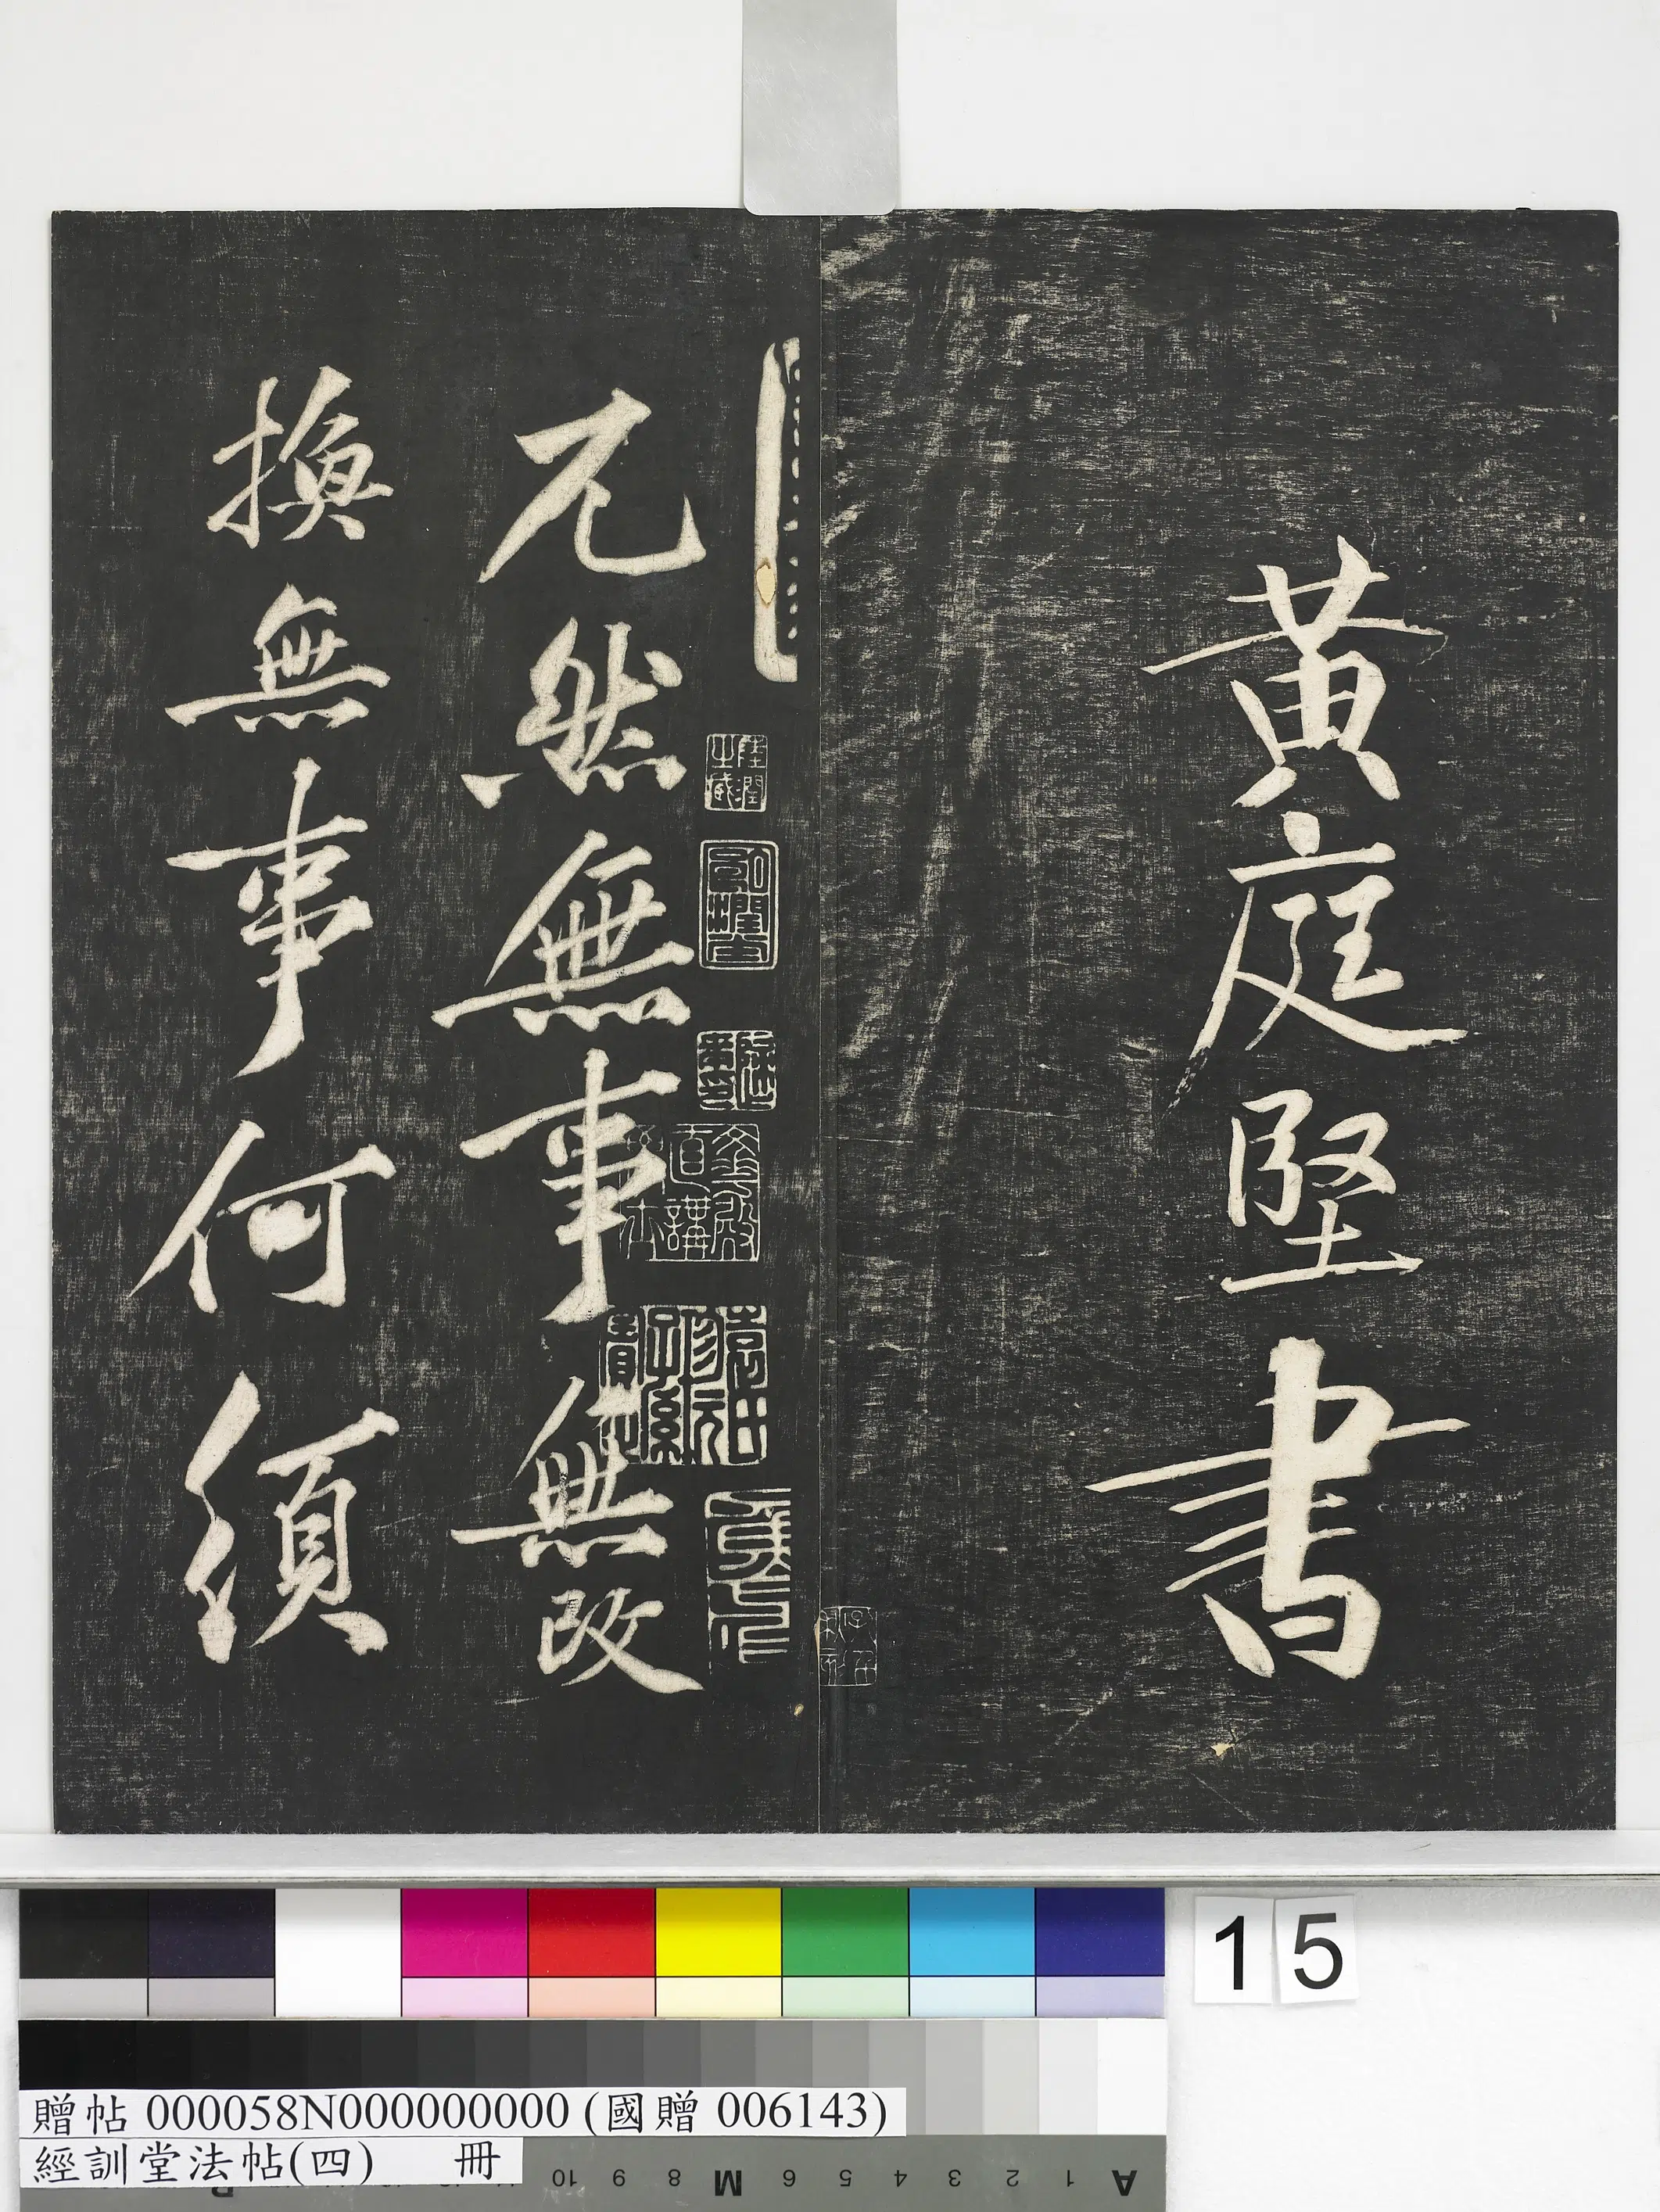 黃庭堅書
兀然無事無改
換無事何須
15
贈帖 000058N000000000 (國贈 006143)
經訓堂法帖(四) 冊
10 9 8 M 6 5 4 3 2 1 A